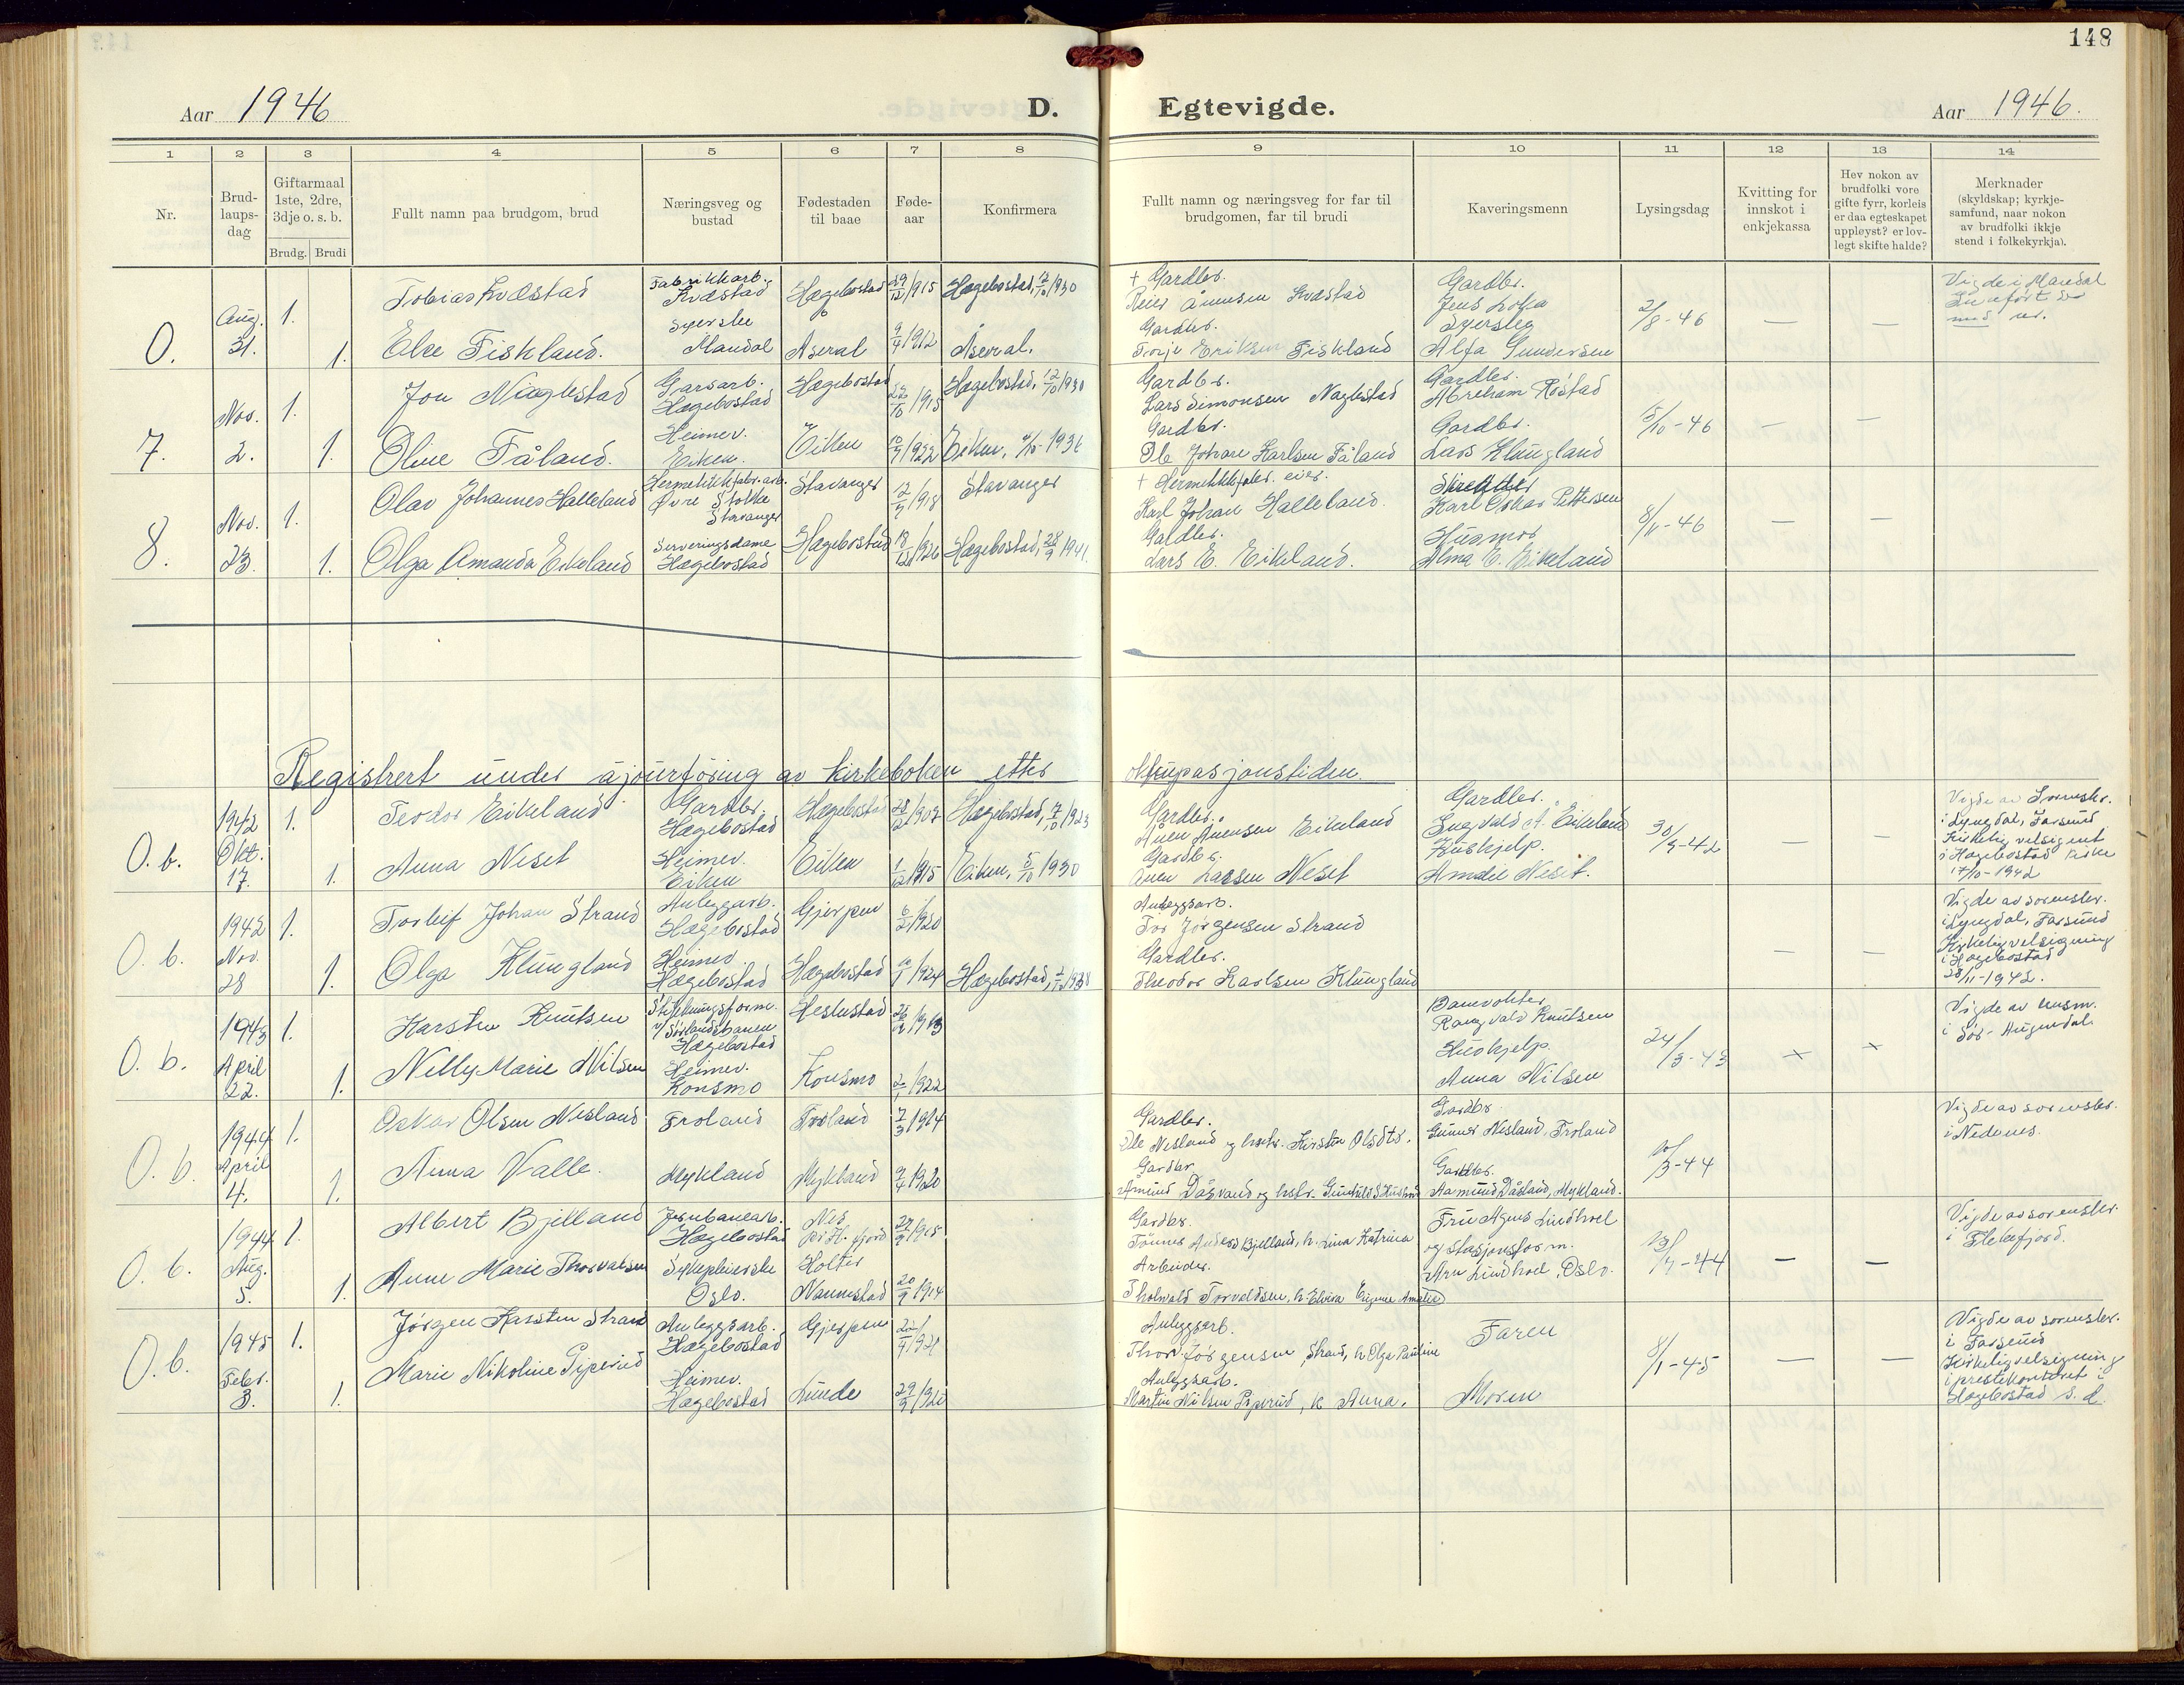 148
Aar 1946
D. Egtevigde.
Aar 1946.
1 2 3 4 5 6 7 8 9 10 11 12 13 14
Nr.
Brud-
laups-
dag
Giftarmaal
1ste, 2dre,
3dje o. s. b.
Brudg. Brudi
Fullt namn paa brudgom, brud
Næringsveg og
bustad
Fødestaden
til baae
Føde-
aar
Konfirmera
Fullt namn og næringsveg for far til
brudgomen, far til brudi
Kaveringsmenn
Lysingsdag
Kvitting for
innskot i
enkjekassa
Hev nokon av
brudfolki vore
gifte fyrr, korleis
er daa egteskapet
uppløyst? er lov-
legt skifte halde?
Merknader
(skyldskap; kyrkje-
samfund, naar nokon
av brudfolki ikkje
stend i folkekyrkja).
0.
Aug.
31.
1.
Tobias Kvåstad
Fabrikkarb.
Kvåstad
Hægebostad
29/12 1915
Hægebostad, 12/10 1930
+ Gardbr.
Reier Ånensen Kvåstad
Gardbr.
Jens Lofta
2/8-46
—
—
Vigde i Mandal
1.
Else Fiskland.
Syerske
Mandal
Åseral
9/4 1912
Åseral.
Gardbr.
Terje Eriksen Fiskland
Syerske
Alfa Gundersen
7.
Nov.
2.
1.
Jon Naglestad
Garsarb.
Hægebostad
Hægebostad
Hægebostad, 12/10 1930
Gardbr.
Lars Simonsen Naglestad
Gardbr.
Abraham Røstad
5/10-46
—
—
1.
Oline Fåland.
Heimev.
Eiken.
Eiken
Gardbr.
Ole Johan Karlsen Fåland
Gardbr.
Lars Klungland
8.
Nov.
23.
1.
Olav Johannes Halleland
Hermetikkfabr. arb.
Øvre Stokke
Stavanger
Stavanger
Stavanger
+ Hermetikkfabr. eier.
Karl Johan Halleland.
Skredder
Karl Oskar Pettersen
8/11-46
—
—
1.
Olga Amanda Eikeland
Serveringsdame
Hægebostad
Hægebostad
18/12 1926
Hægebostad, 28/9 1941.
Lars E. Eikeland.
Husmor
Alma E. Eikeland
Registrert under ajourføring av kirkeboken etter okkupasjonstiden.
0. b.
1942
Okt.
17.
1.
Teodor Eikeland
Gardbr.
Hægebostad
Hægebostad
Hægebostad, 7/10 1923
Gardbr.
Ånen Ånensen Eikeland
Gardbr.
Ingvald A. Eikeland
30/9-42
—
—
Vigde av Sorenskr.
i Lyngdal, Farsund
Kirkelig velsignet
i Hægebostad kirke
17/10-1942
1.
Anna Neset
Heimev.
Eiken
Eiken
1/12 1915
Eiken, 5/10 1930
Gardbr.
Ånen Larsen Neset
Hushjelp.
Amdli Neset.
0. b.
1942
Nov.
28
1.
Torleif Johan Strand
Anleggsarb.
Hægebostad
Gjerpen
6/2 1920
Anleggsarb.
Tor Jørgensen Strand
—
—
Vigde av sorenskr.
i Lyngdal, Farsund
Kirkelig velsigning
i Hægebostad
28/11-1942.
1.
Olga Klungland
Heimev.
Hægebostad
Hægebostad
Gardbr.
Theodor Karlsen Klungland
0. b.
1943
April
22.
1.
Karsten Knutsen
v/Sørlandsbanen
Hægebostad
Banevokter
Rangvald Knutsen
24/3-43
×
×
Vigde av
i Sør-Audnedal
1.
Nelly Marie Nilsen
Heimev.
Konsmo
Konsmo
2/1 1922
Hushjelp
Anna Nilsen
0. b.
1944
April
4.
1.
Oskar Olsen Nesland
Froland
Froland
7/3 1914
Gardbr.
Ole Nesland og hustr. Kirsten Olsdtr.
Gardbr.
Gunnar Nesland, Froland
10/3-44
Vigde av sorenskr.
i Nedenes.
1.
Anna Valle.
Mykland
Mykland
9/4 1920
Gardbr.
Gardbr.
Aamund Dåsland, Mykland.
0. b.
1944
Aug.
5.
1.
Albert Bjelland
Jernbanearb.
Hægebostad
Nes
Gardbr.
Tønnes Anders Bjelland, h. Lina Katrina
Fru Agnes Lindhoel
og Stasjonsform.
Arn Lindhoel, Oslo.
—
—
Vigde av sorenskr.
i Flekkefjord.
1.
Anne Marie Thorvaldsen
Sykepleierske
Oslo.
Holter
Nannestad
20/9 1914
Arbeider.
Tholwald Torvaldsen, h. Elvira Eugenie Amalie
0. b.
1945
Febr.
3.
1.
Jørgen Karsten Strand
Anleggsarb.
Hægebostad
Gjerpen
Anleggsarb.
Thor Jørgensen Strand, h Olga Pauline
Faren
8/1-45
—
—
Vigde av sorenskr.
i Farsund
Kirkelig velsigning
i prestekontoret i
Hægebostad s. d.
1.
Marie Nikoline Piperud
Heimev.
Hægebostad
Lunde
Anleggsarb.
Martin Nilsen Piperud, h Anna.
Moren